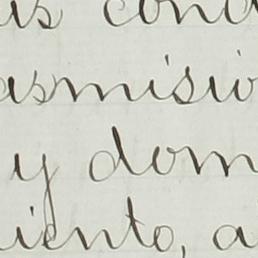 as cond
asmisio
y dom
iento, a